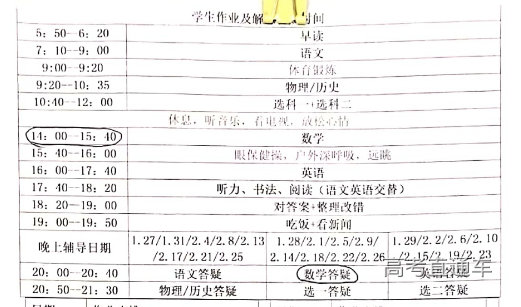 学生作业及解 时间
5: 50--6: 20 早读
7: 10--9: 00 语文
9:00--9:20 体育锻炼
9:20--10: 35 物理/历史
10:40--12: 00 选科一+选科二
休息, 听音乐, 看电视, 放松心情
14: 00--15: 40 数学
15: 40--16: 00 眼保健操, 户外深呼吸, 远眺
16: 00--17: 40 英语
17: 40--18: 20 听力、书法、阅读(语文英语交替)
18: 20--19: 00 对答案+整理改错
19: 00--19: 50 吃饭+看新闻
晚上辅导日期 1.27/1.31/2.4/2.8/2.13/2.17/2.21/2.25 1.28/2.1/2.5/2.9/2.14/2.18/2.22/2.26 1.29/2.2/2.6/2.10/2.15/2.19/2.23
20: 00--20: 40 语文答疑 数学答疑 英语答疑
20: 50--21: 30 物理/历史答疑 选一答疑 选二答疑
高考直通车